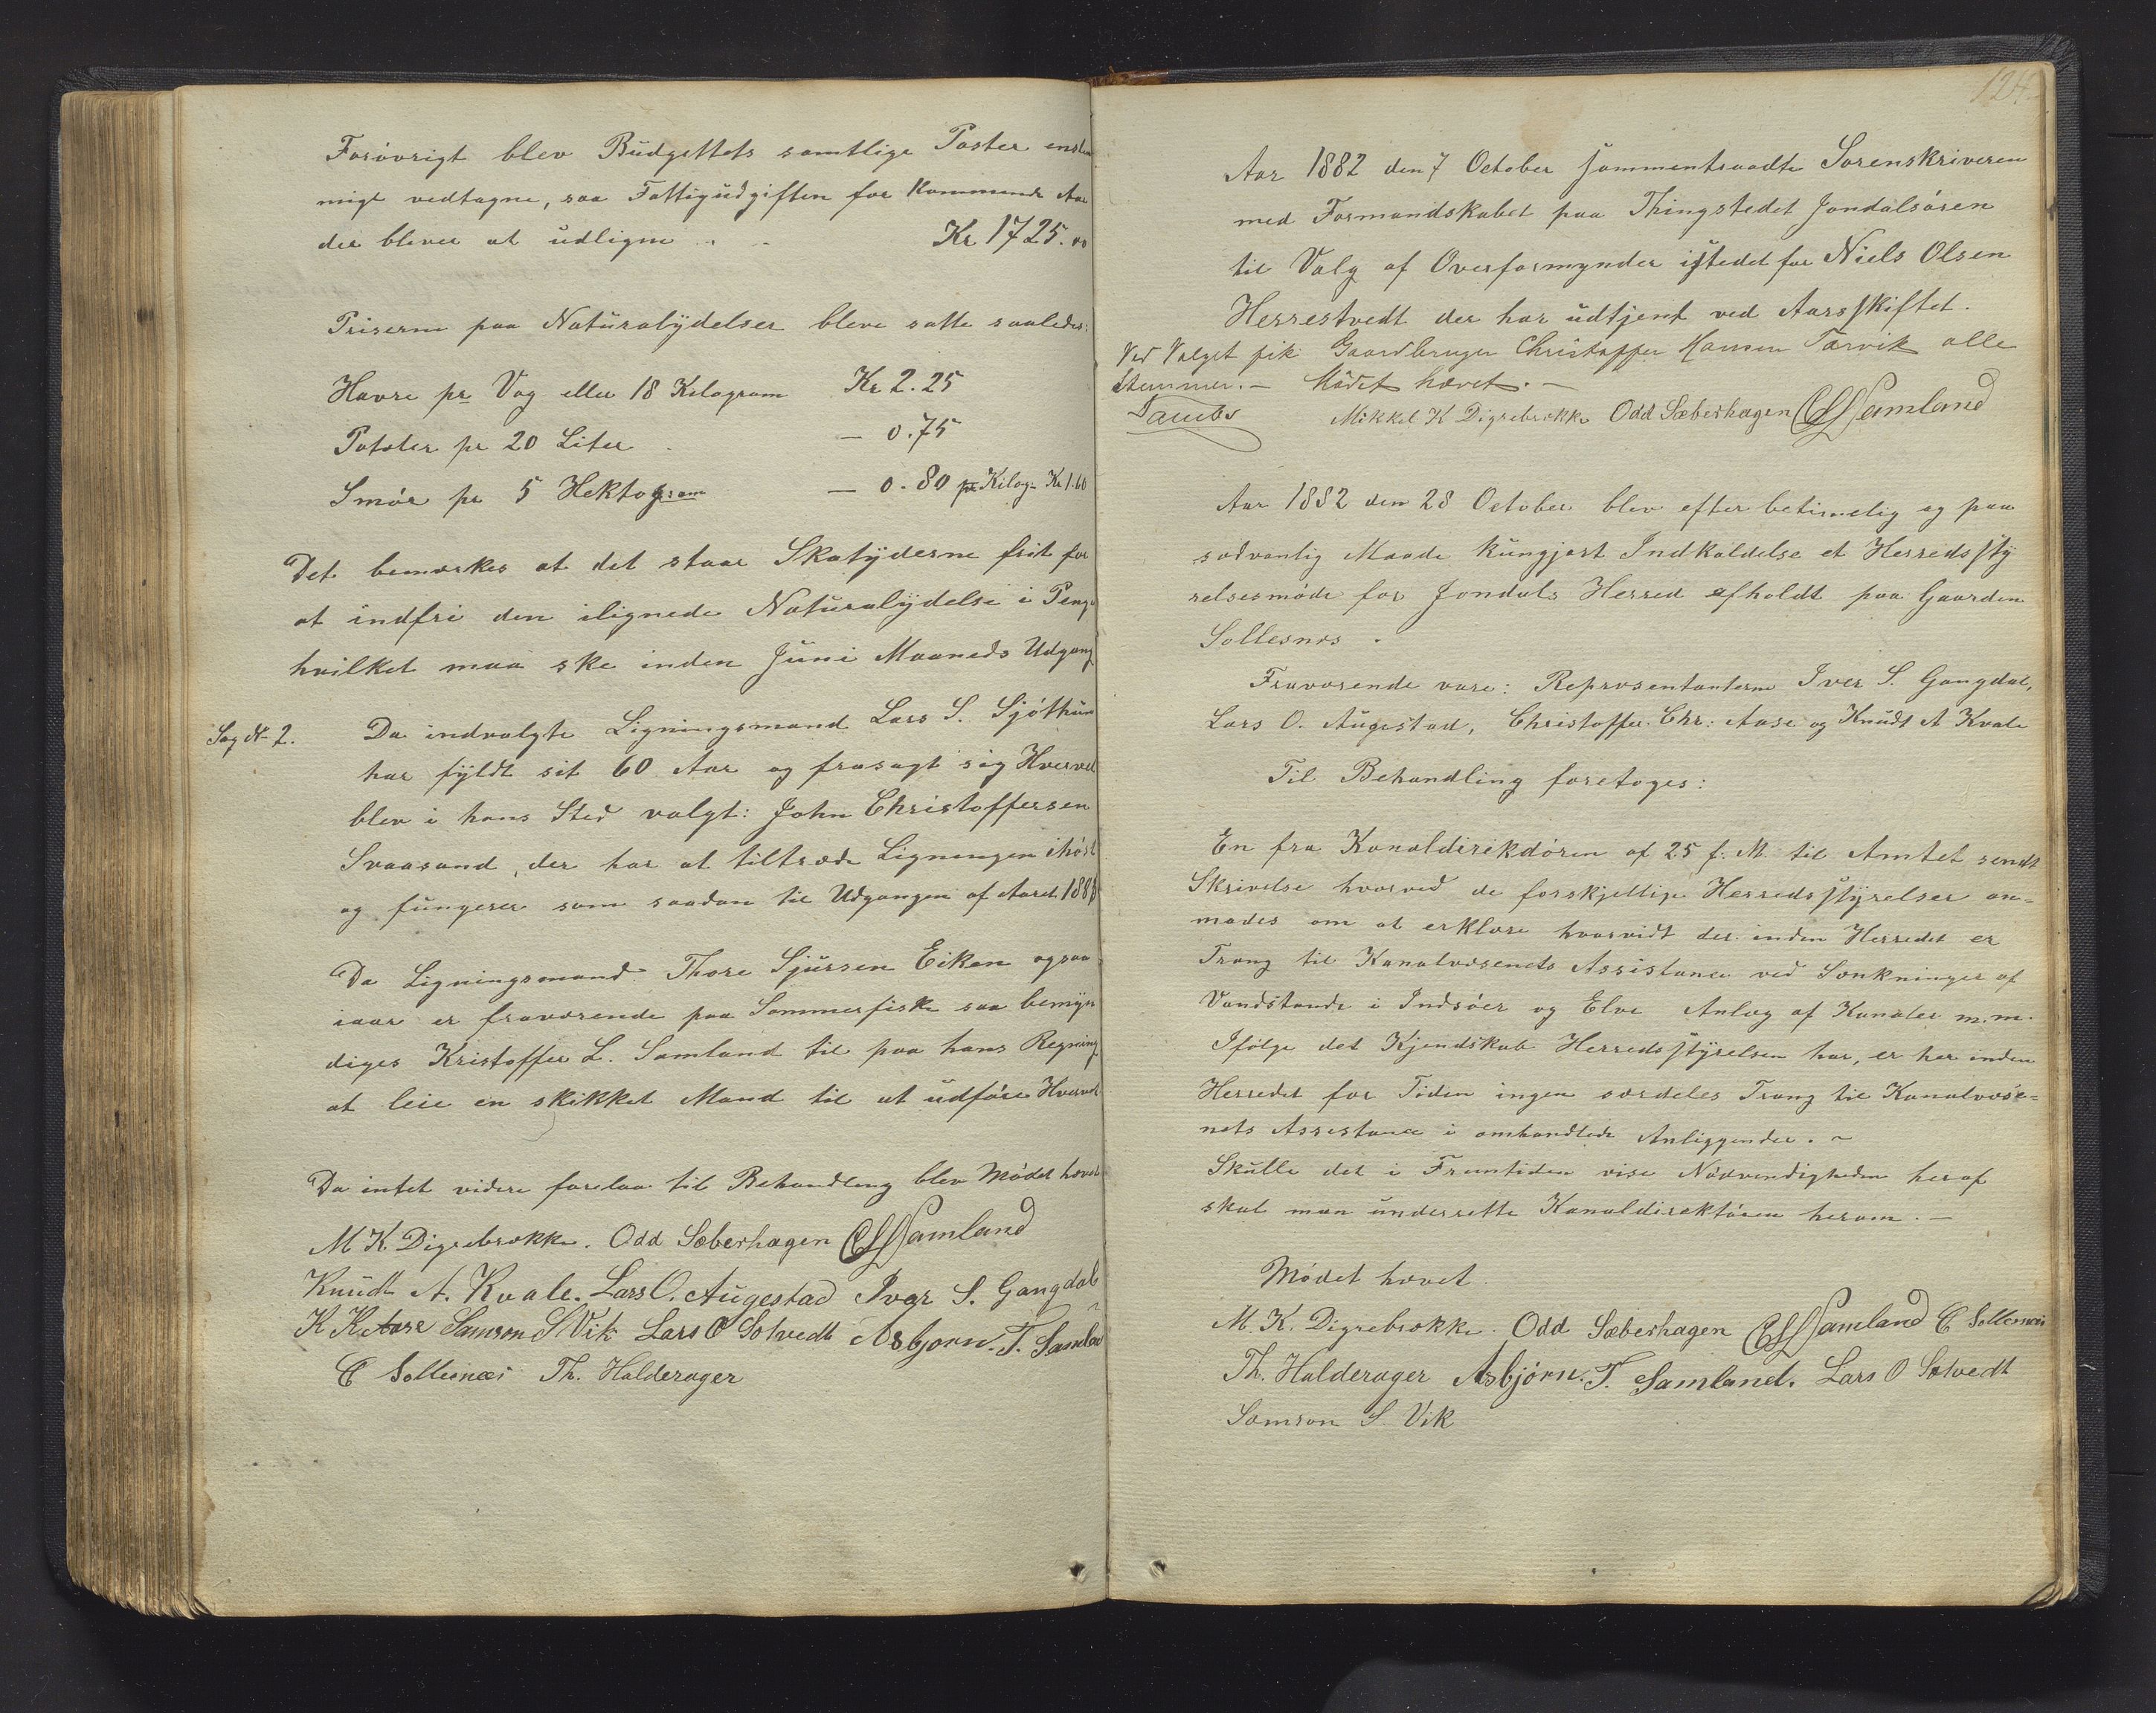 Forøvrigt blev Büdgettets samtlige Poster enstem
migt vedtagne, saa Fattigüdgiften for Kommende Aar
der bliver at üdligne . . Kr 1725.00
Priserne paa Natüralydelser bleve satte saaledes:
Havre pr Vog eller 18 Kilogram Kr 2.25
Poteter pr 20 Liter — 0.75
Smør pr 5 Hektogram — 0.80 pr Kilog. Kr 1.60
Det bemærkes at det staar Skatÿderne frit for
at indfri den ilignede Natüralÿdelse i Penge
hvilket maa ske inden Jüni Maaneds Udgang
Sag № 2. Da indvalgte Ligningsmand Lars S. Sjøthün
har fÿldt sit 60 Aar og frasagt sig Hvervet
blev i hans Sted valgt: John Christoffersen
Svaasand, der har at tiltræde Ligningen ihøst
og füngerer som saadan til Udgangen af Aaret
Da Ligningsmand Thore Sjürsen Eiken ogsaa
iaar er fraværende paa Sommerfiske saa bemÿn
diges Kristoffer L. Samland til paa hans Regning
at leie en skikket Mand til at üdføre Hvervet
Da intet videre forelaa til Behandling blev Mødet hævet
M K. Digrebrække. Odd Sæberhagen CLSamland
Knüdt A. Kvale. Lars O. Aügestad Iver S. Gangdal
K K Aase Samson S Vik Lars O Solvedt Asbjørn. T. Samland
C Sollesnæs Th. Halderager
124.
Aar 1882 den 7 October sammentraadte Sorenskriveren
med Formandskabet paa Thingstedet Jondalsøren
til Valg af Overformynder istedet for Niels Olsen
Herrestvedt der har üdtjent ved Aarsskiftet.
Ved Valget fik Gaardbruger Christoffer Hansen Torvik alle
Stemmer. — Mødet hævet. —
Mikkel K Digrebrække Odd Sæberhagen CLSamland
Aar 1882 den 28 October blev efter betimelig og paa
sædvanlig Maade küngjort Indkaldelse et Herredsstÿ
relsesmøde for Jondals Herred afholdt paa Gaarden
Sollesnes .
Fraværende vare: Repræsentanterne Iver S. Gangdal,
Lars O. Aügestad, Christoffer Chr: Aase og Knüdt A Kvale
Til Behandling foretoges:
En fra Kanaldirekdøren af 25 f. M. til Amtet sendt
Skrivelse hvorved de forskjellige Herredsstÿrelser an=
modes om at erklære hvorvidt der inden Herredet er
Trang til Kanalvæsenets Assistance ved Sænkninger af
Vandstande i Indsøer og Elve Anlæg af Kanaler m.m.
Ifølge det Kjendskab Herredsstÿrelsen har, er her inden
Herredet for Tiden ingen særdeles Trang til Kanalvæse=
nets Assistance i omhandlede Anliggender. ~
Skülle det i Fremtiden vise Nødvendigheden heraf
skal man ünderrette Kanaldirektøren herom. —
Mødet hævet.
M. K. Digrebrække. Odd Sæberhagen CLSamland C Sollesnæs
Th. Halderager Asbjørn. T. Samland. Lars O Solvedt
Samson S Vik